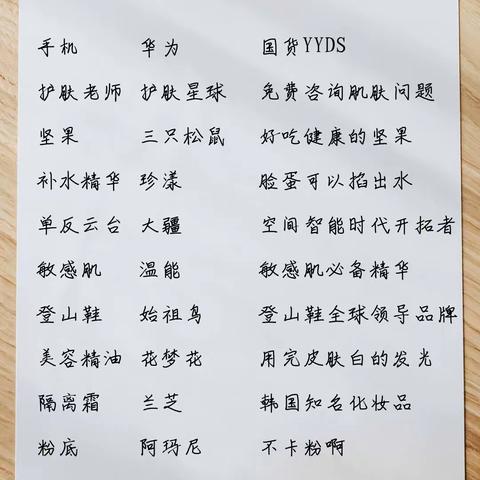 手机 华为 国货YYDS
护肤老师 护肤星球 免费咨询肌肤问题
坚果 三只松鼠 好吃健康的坚果
补水精华 珍漾 脸蛋可以掐出水
单反云台 大疆 空间智能时代开拓者
敏感肌 温能 敏感肌必备精华
登山鞋 始祖鸟 登山鞋全球领导品牌
美容精油 花梦花 用完皮肤白的发光
隔离霜 兰芝 韩国知名化妆品
粉底 阿玛尼 不卡粉啊